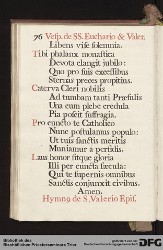 76 Vesp. de SS. Euchario & Valer.
Libens vise solemnia.
Tibi phalanx monastica
Devota clangit jubilo:
Quo pro suis excessibus
Sternas preces propitius.
Caterva Cleri nobilis
Ad tumbam tanti Præsulis
Una cum plebe credula
Pia poscit suffragia.
Pro cuncto te Catholico
Nunc postulamus populo:
Ut tuis sanctis meritis
Muniamur à periculis.
Laus honor sitque gloria
Illi per cuncta sæcula:
Qui te supernis omnibus
Sanctis conjunxit civibus.
Amen.
Hymnq de S. Valerio Epis.
Bibliothek des
Bischöflichen Priesterseminars Trier
DFG